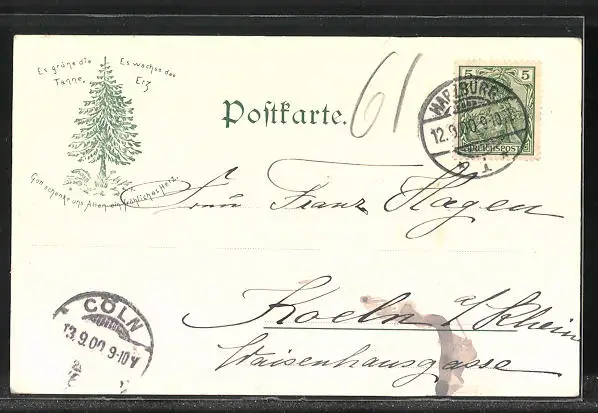 Es grüne die
Tanne,
Es wachse das
Erz
Gott schenke uns Allen ein fröhliches Herz.
Postkarte.
61
5 5
REICHSPOST
HARZBURG
12.9.00.9-10
Frau Franz Hagen
Koeln a/Rhein
Waisenhausgasse
CÖLN
13.9.00 9-10V